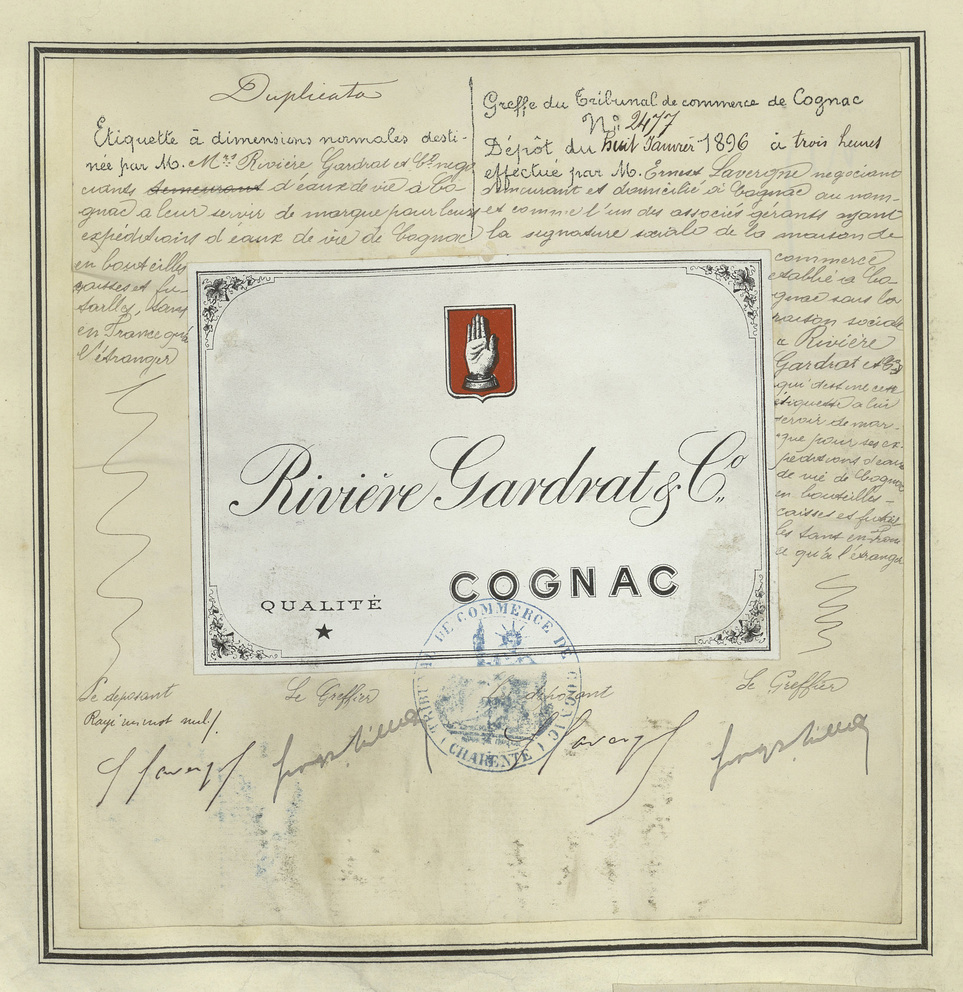 Duplicata
Etiquette à dimensions normales desti-
née par M. Mrs Rivière Gardrat et Cie négo
ciants demeurant d'eaux de vie à Co
gnac a leur servir de marque pour leurs
expéditions d'eaux de vie de Cognac
en bouteilles
caisses et fu-
tailles, tant
en France qu'à
l'étranger
Greffe du Tribunal de commerce de Cognac
No. 2477
Dépôt du huit Janvier 1896 à trois heures
effectué par M. Ernest Lavergne négociant
demeurant et domicilié à Cognac au nom-
et comme l'un des associés gérants ayant
la signature sociale de la maison de
commerce
établie à Co
gnac sous la
raison sociale
Rivière
Gardrat et Cie
qui destine cette
étiquette a lui
servir de mar-
que pour ses ex-
péditions d'eaux
de vie de Cognac
en bouteilles-
caisses et futail
les tant en Fran
ce qu'à l'étranger
Rivière Gardrat & Co
COGNAC
QUALITÉ
★
TRIBUNAL DE COMMERCE DE COGNAC
(CHARENTE)
Le déposant
Le Greffier
Le déposant
Le Greffier
Rayé un mot nul